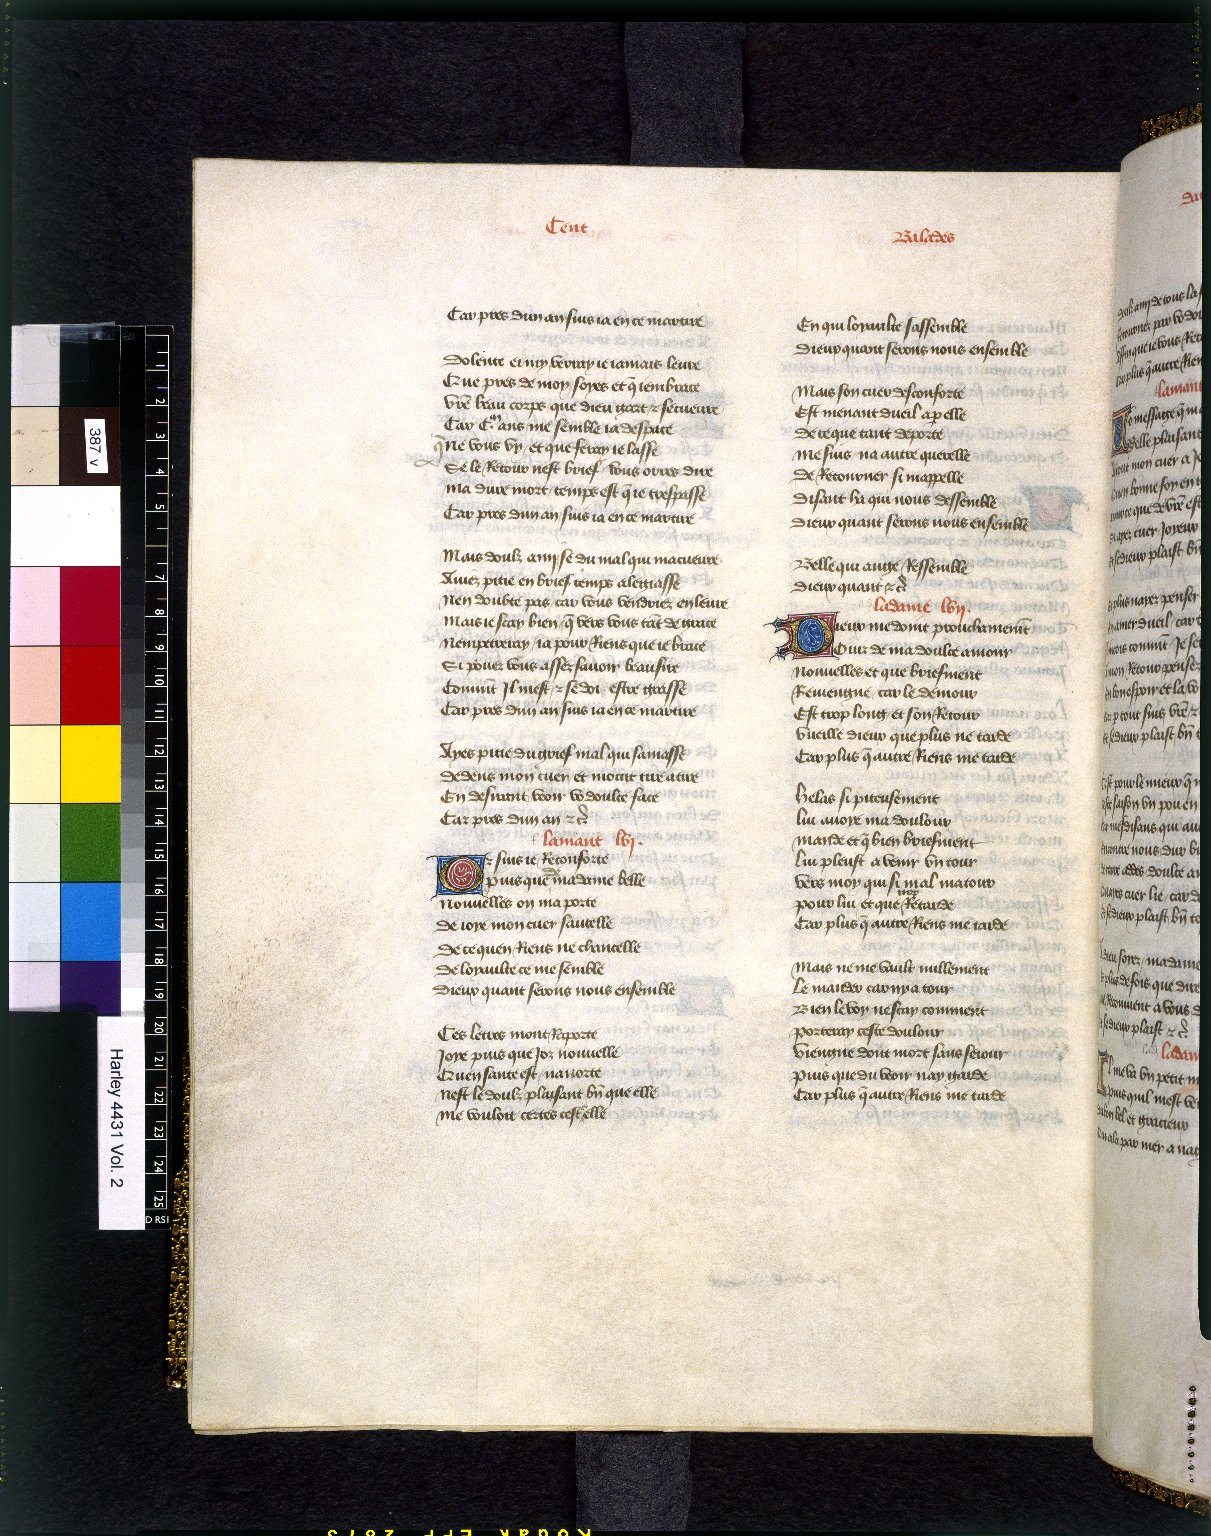 Cent
Balades
Car pres dun an suis ia en ce martire
Dolente ei my verray ie iamais leure
Que pres de moy soyes et q̃ iembrace
Vr̃e beau corps que dieu gart ⁊ sequeure
Car C. ans me semble ia despace
q̃ Ne vous vy et que feray ie lasse
Se le Retour nest brief vous orres dire
Ma dure mort temps est q̃ ie trespasse
Car pres dun an suis ia en ce martire
Mais doulz amy se du mal qui macueure
Auiez pitie en brief temps alegasse
Nen doubte pas car vous vendriez en leure
Mais ie scay bien q̃ vers vous tãt de grace
Nempetreray ia pour Riens que ie brace
Si pouez vous assez sauoir beau sire
Comm̃t Il mest ⁊ se doi estre grasse
Car pres dun an suis ia en ce martire
Ayes pitie du grief mal qui samasse
Dedens mon cuer et mocit tire a tire
En desirant veoir vo doulce face
Car pres dun an ⁊c̃
lamant lvj.
Or suis ie Reconforte
Puis que de madame belle
Nouuelles on ma porte
De ioye mon cuer sautelle
De ce quen Riens ne chancelle
De loyaulte ce me semble
Dieux quant serons nous ensemble
Ces lettres mont Raporte
Joye puis que Joz nouuelle
Quen sante est nauorte
Nest le doulz plaisant bñ que elle
Me vouloit certes cest elle
En qui loyaulte sassemble
Dieux quant serons nous ensemble
Mais son cuer desconforte
Est menant dueil aꝑ elle
De ce que tant deporte
Me suis na autre querelle
De Retourner si mappelle
Disant ha qui nous dessemble
Dieux quant serons nous ensemble
Belle qui ange Ressemble
Dieux quant ⁊c̃
ladame lvij.
Dieux me doint prouchainem̃t
Ouir de ma doulce amour
Nouuelles et que briefment
Reuiengne car le demour
Est trop long et son Retour
Vueille dieux que plus ne tarde
Car plus q̃ autre Riens me tarde
Helas si piteusement
Lui auoye ma doulour
Mande et q̃ bien briefment
Lui pleust a venir vn tour
Vers moy qui si mal matour
Pour lui et que trop Retarde
Car plus q̃ autre Riens me tarde
Mais ne me vault nullement
Le mander car ny a tour
Bien le voy ne scay comment
Porteray ceste doulour
Viengne dont mort sans seiour
Puis que du veoir nay garde
Car plus q̃ autre Riens me tarde
387 v
Harley 4431 Vol. 2
1
2
3
4
5
7
8
9
10
11
12
13
14
15
16
17
18
19
20
21
22
23
24
25